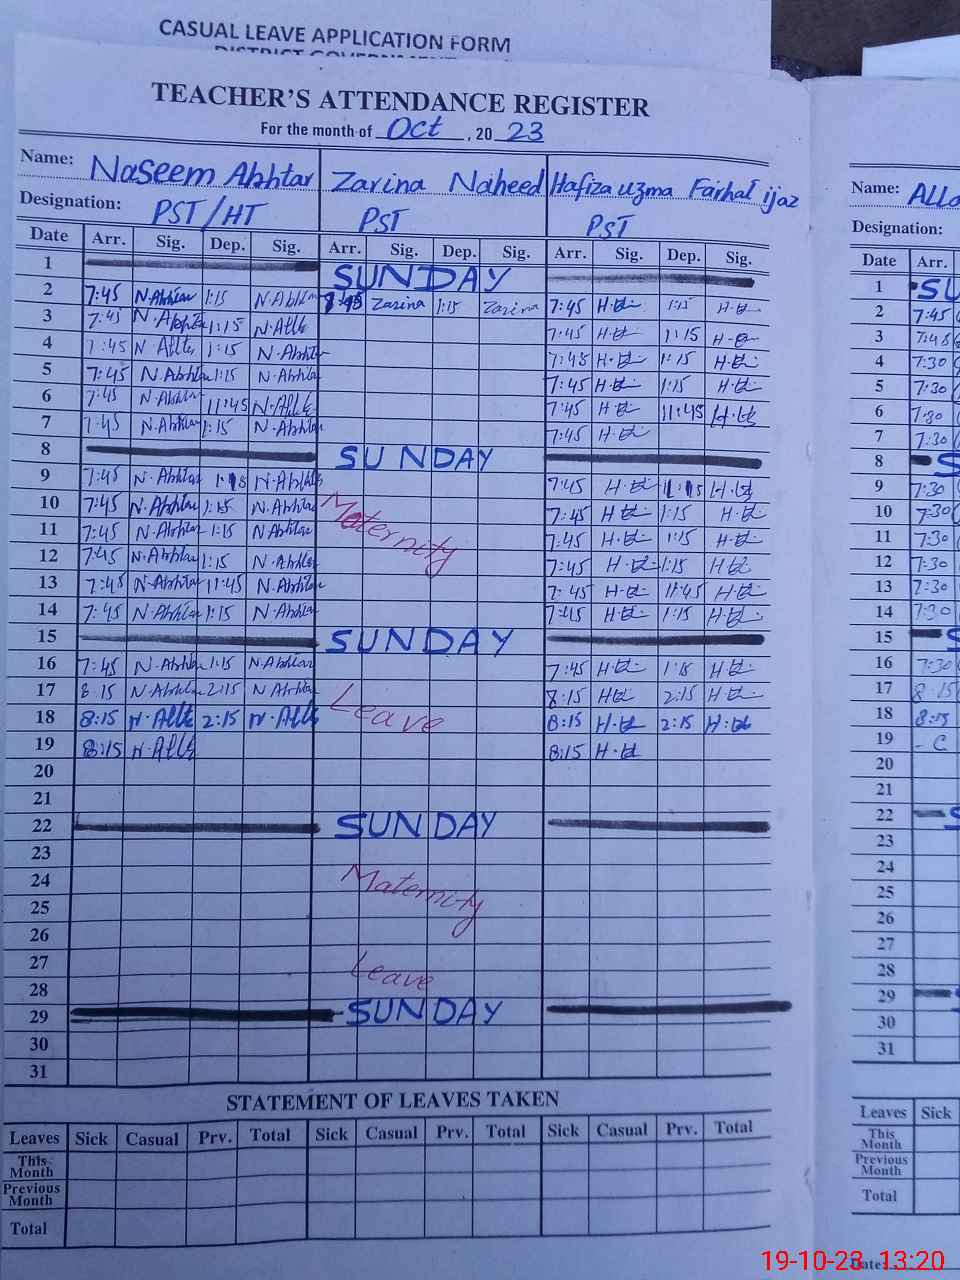 CASUAL LEAVE APPLICATION FORM
DISTRICT GOVERNMENT
TEACHER'S ATTENDANCE REGISTER
For the month of Oct, 20 23
Name: Naseem Akhtar Zarina Naheed Hafiza uzma Farhat ijaz
Designation: PST/HT PST PST
Date Arr. Sig. Dep. Sig. Arr. Sig. Dep. Sig. Arr. Sig. Dep. Sig.
1 SUNDAY
2 7:45 N.Akhtar 1:15 N.Akhtar 7:45 Zarina 1:15 Zarina 7:45 1:15
3 7:45 N.Akhtar 1:15 7:45 1:15
4 7:45 1:15 N.Akhtar 7:45 1:15
5 7:45 N.Akhtar 1:15 N.Akhtar 7:45 1:15
6 7:45 N.Akhtar 11:45 7:45 11:45
7 7:45 N.Akhtar 1:15 N.Akhtar 7:45
8 SUNDAY
9 7:45 N.Akhtar 1:15 N.Akhtar 7:45 11:15
10 7:45 N.Akhtar 1:15 N.Akhtar Maternity 7:45 1:15
11 7:45 N.Akhtar 1:15 N.Akhtar 7:45 1:15
12 7:45 N.Akhtar 1:15 N.Akhtar 7:45 1:15
13 7:45 N.Akhtar 11:45 N.Akhtar 7:45 11:45
14 7:45 N.Akhtar 1:15 N.Akhtar 7:45 1:15
15 SUNDAY
16 7:45 N.Akhtar 1:15 N.Akhtar 7:45 1:15
17 8:15 N.Akhtar 2:15 N.Akhtar Leave 8:15 2:15
18 8:15 2:15 8:15 2:15
19 8:15 8:15
20
21
22 SUNDAY
23
24 Maternity
25
26
27 Leave
28
29 SUNDAY
30
31
STATEMENT OF LEAVES TAKEN
Leaves Sick Casual Prv. Total Sick Casual Prv. Total Sick Casual Prv. Total
This Month
Previous Month
Total
Name:
Designation:
Date Arr.
1
2 7:45
3 7:45
4 7:30
5 7:30
6 7:30
7 7:30
8
9 7:30
10 7:30
11 7:30
12 7:30
13 7:30
14 7:30
15
16 7:30
17 8:15
18 8:15
19 - C
20
21
22
23
24
25
26
27
28
29
30
31
Leaves Sick
This Month
Previous Month
Total
Date:
19-10-23 13:20